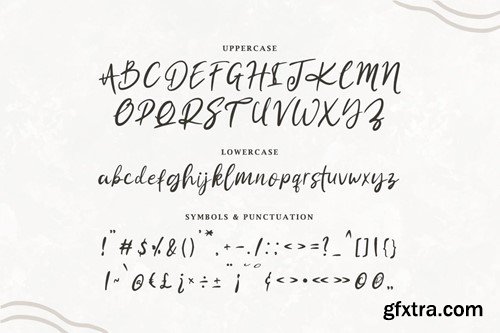 UPPERCASE
ABCDEFGHIJKLMN
OPQRSTUVWXYZ
LOWERCASE
abcdefghijklmnopqrstuvwxyz
SYMBOLS & PUNCTUATION
!"#$%&()'*,+-./:;<>=?_^[]|{}
gfxtra.com